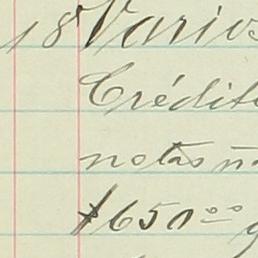 18 Varios
Crédito
notas n
$650.00